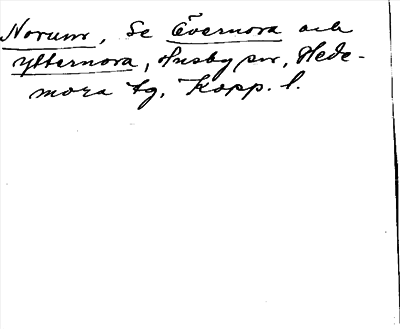 Norum, Se Övernora och
Ytternora, Husby sn, Hede-
mora tg, Kopp. l.